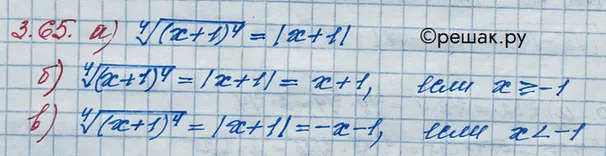 3.65. а) ⁴√(x+1)⁴ = |x+1|
©решак.ру
б) ⁴√(x+1)⁴ = |x+1| = x+1, если x ≥ -1
в) ⁴√(x+1)⁴ = |x+1| = -x-1, если x < -1